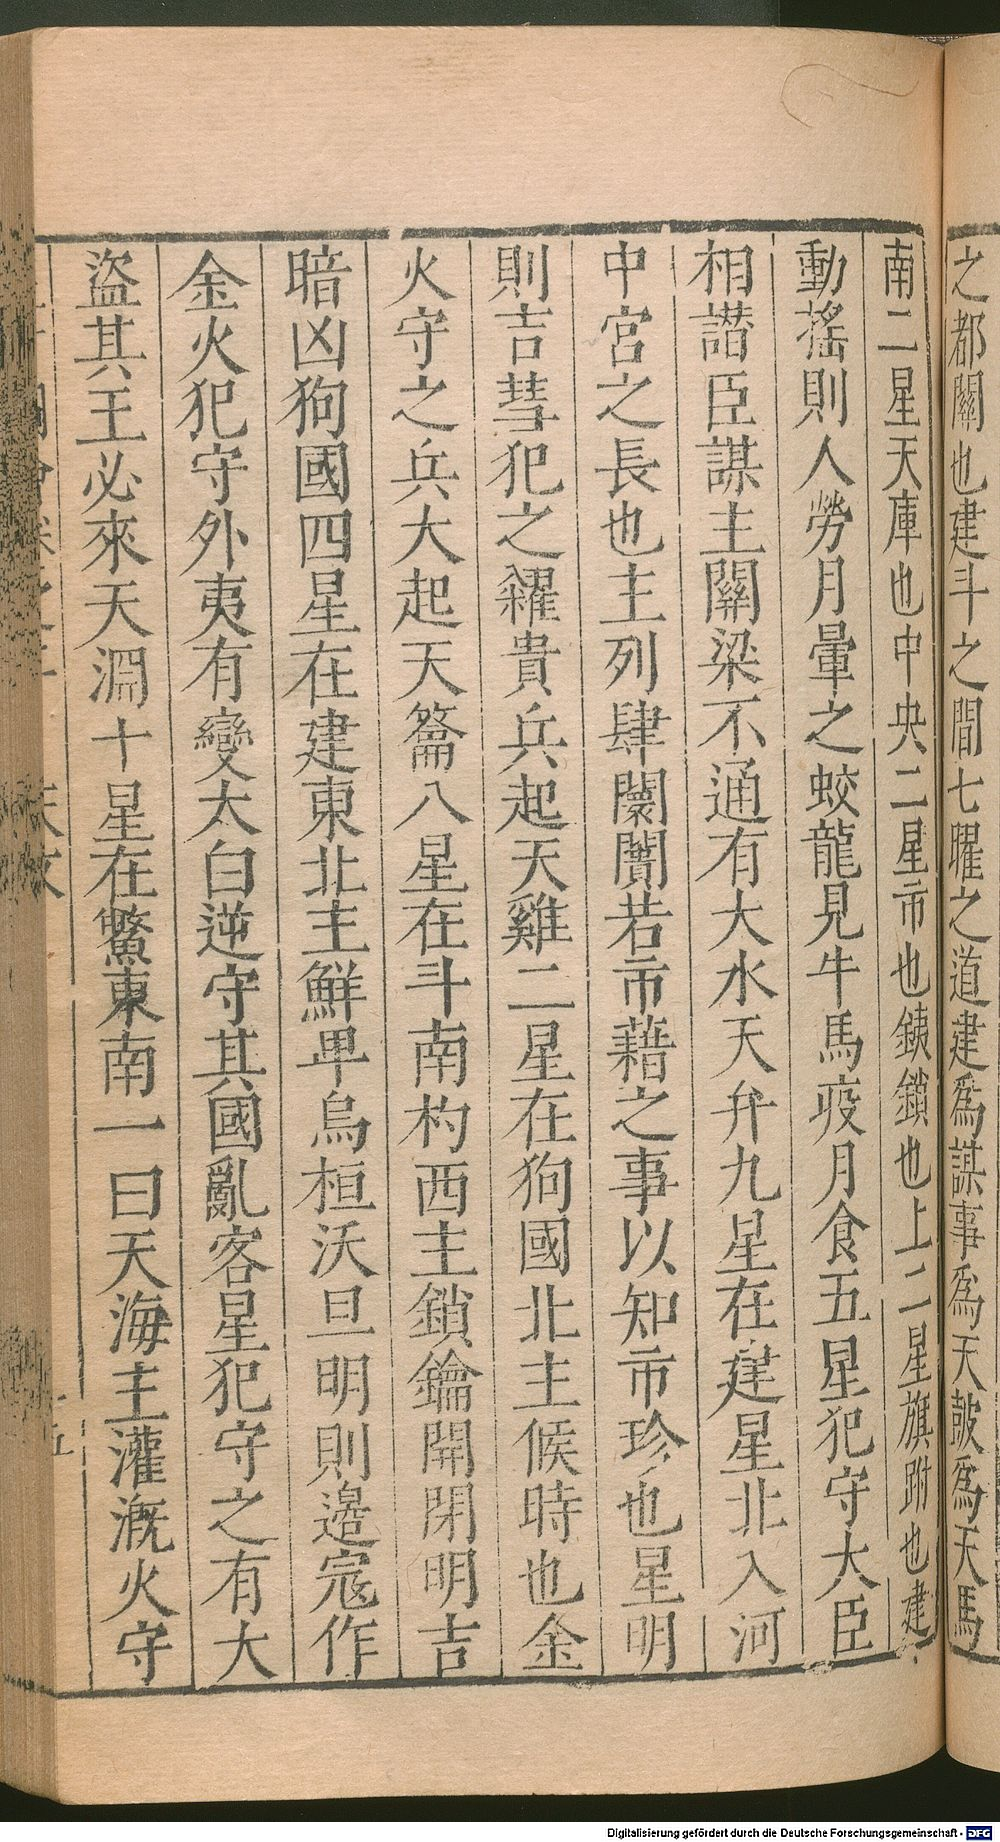 之都關也建斗之間七曜之道建爲謀事爲天皷爲天馬
南二星天庫也中央二星市也鈇鎖也上二星旗跗也建
動搖則人勞月暈之蛟龍見牛馬疫月食五星犯守大臣
相譛臣謀主關梁不通有大水天弁九星在建星北入河
中宮之長也主列肆闤闠若市藉之事以知市珍也星明
則吉彗犯之糴貴兵起天雞二星在狗國北主候時也金
火守之兵大起天籥八星在斗南杓西主鎖鑰開閉明吉
暗凶狗國四星在建東北主鮮卑烏桓沃且明則邊寇作
金火犯守外夷有變太白逆守其國亂客星犯守之有大
盜其王必來天淵十星在鱉東南一曰天海主灌漑火守
天文
Digitalisierung gefördert durch die Deutsche Forschungsgemeinschaft - DFG